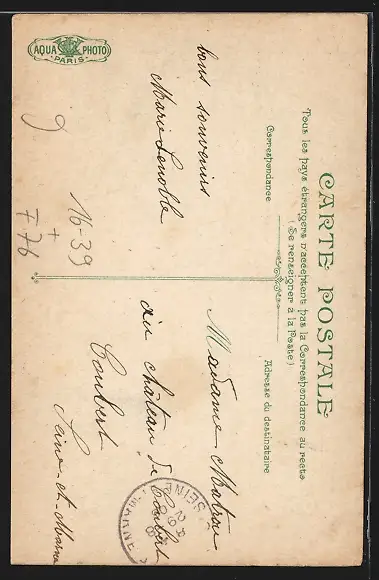 CARTE POSTALE
Tous les pays étrangers n'acceptent pas la Correspondance au recto
(Se renseigner à la Poste)
Correspondance
Adresse du destinataire
bons souvenirs
Marie Lenoble
Madame
au château de Coubert
Coubert
Seine-et-Marne
16-39
+
F76
9
AQUA PHOTO
PARIS
SEINE